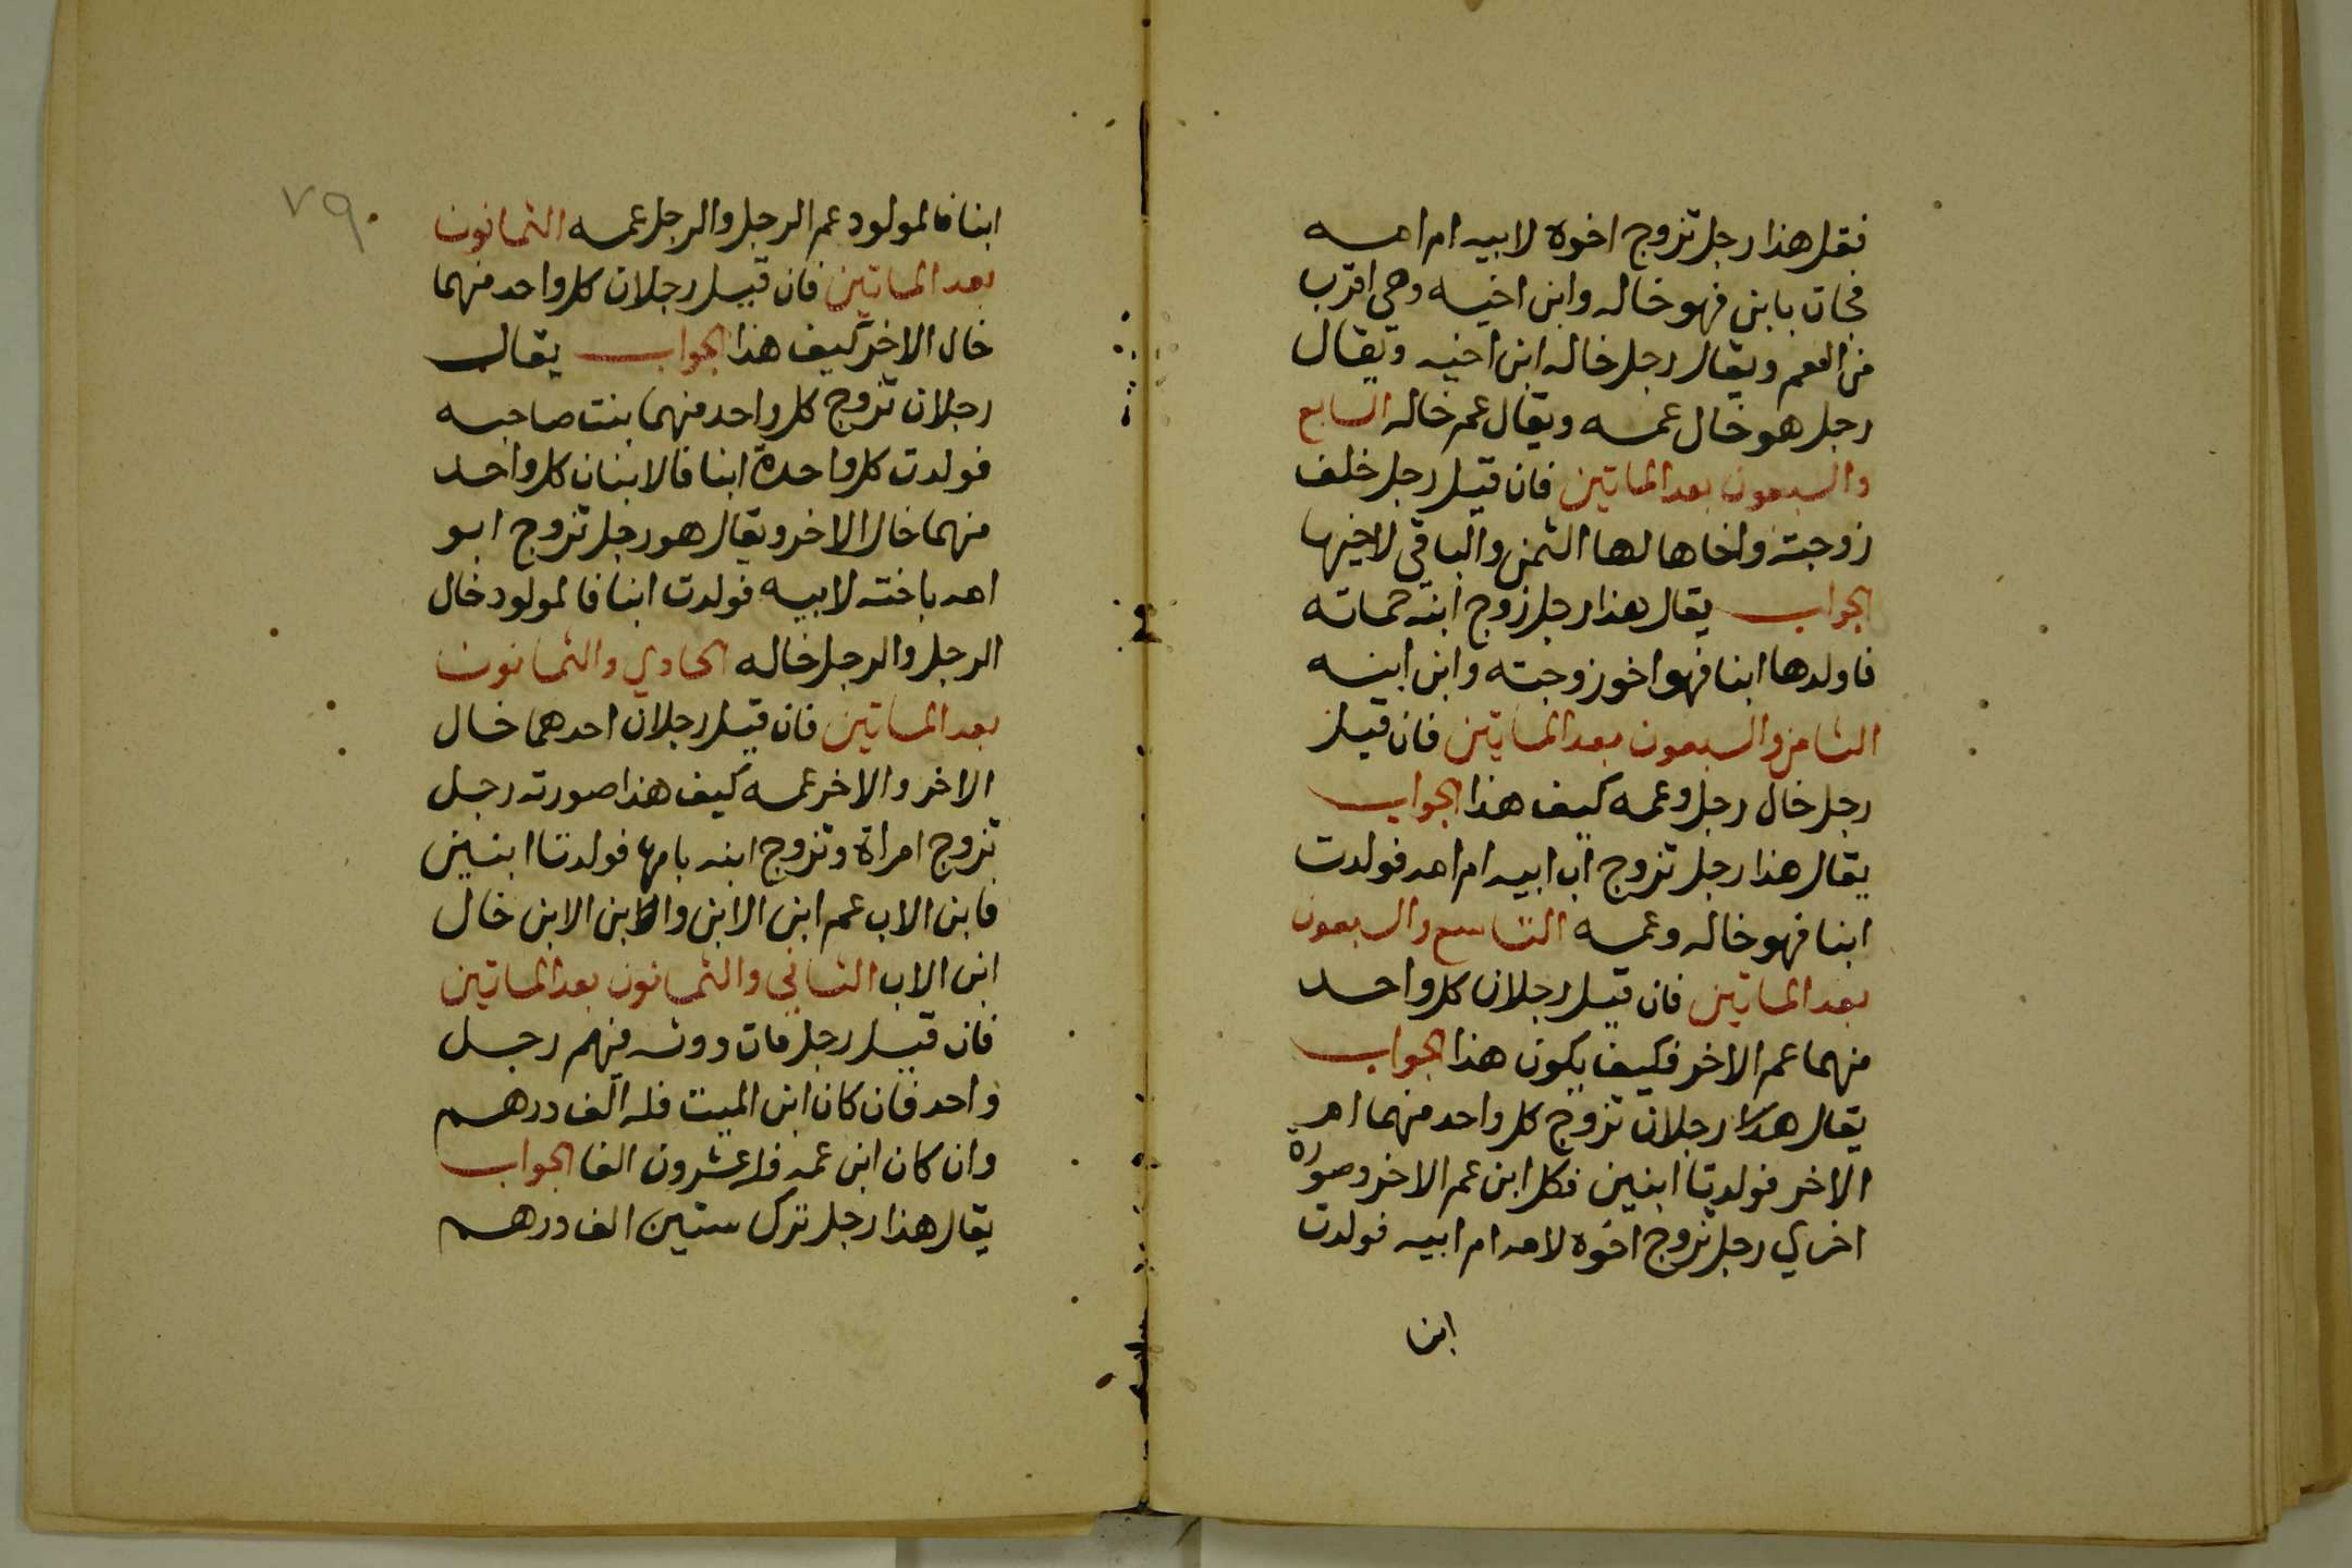 فقل هذا رجل تزوج اخوه لابيه ام امه
فجات بابن فهو خاله وابن اخيه وهي اقرب
من العم ويقال رجل خاله ابن اخيه ويقال
رجل هو خال عمه ويقال عم خاله السابع
والسبعون بعد الماتين فان قيل رجل خلف
زوجته واخاها لها الثمن والباقي لاخيها
الجواب يقال هذا رجل زوج ابنه حماته
فاولدها ابنا فهو اخو زوجته وابن ابنه
الثامن والسبعون بعد الماتين فان قيل
رجل خال رجل وعمه كيف هذا الجواب
يقال هذا رجل تزوج اب ابيه ام امه فولدت
ابنا فهو خاله وعمه التاسع والسبعون
بعد الماتين فان قيل رجلان كل واحد
منهما عم الاخر فكيف يكون هذا الجواب
يقال هذا رجلان تزوج كل واحد منهما ام
الاخر فولدتا ابنين فكل ابن عم الاخر وصورة
اخري رجل تزوج اخوه لامه ام ابيه فولدت
ابنا
٧٩
ابنا فالمولود عم الرجل والرجل عمه الثمانون
بعد الماتين فان قيل رجلان كل واحد منهما
خال الاخر كيف هذا الجواب يقال
رجلان تزوج كل واحد منهما بنت صاحبه
فولدت كل واحدة ابنا فالابنان كل واحد
منهما خال الاخر ويقال هو رجل تزوج ابو
امه باخته لابيه فولدت ابنا فالمولود خال
الرجل والرجل خاله الحادي والثمانون
بعد الماتين فان قيل رجلان احدهما خال
الاخر والاخر عمه كيف هذا صورته رجل
تزوج امراة وتزوج ابنه بامها فولدتا ابنين
فابن الاب عم ابن الابن وابن الابن خال
ابن الاب الثاني والثمانون بعد الماتين
فان قيل رجل مات وورثه فيهم رجل
واحد فان كان ابن الميت فله الف درهم
وان كان ابن عمه فله عشرون الفا الجواب
يقال هذا رجل ترك ستين الف درهم